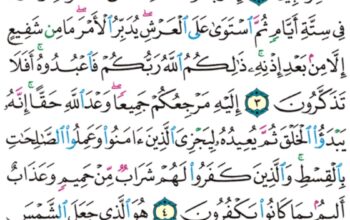 فِي سِتَّةِ أَيَّامٍ ثُمَّ ٱسْتَوَىٰ عَلَى ٱلْعَرْشِ يُدَبِّرُ ٱلْأَمْرَ مَا مِن شَفِيعٍ
إِلَّا مِنۢ بَعْدِ إِذْنِهِۦ ذَٰلِكُمُ ٱللَّهُ رَبُّكُمْ فَٱعْبُدُوهُ أَفَلَا
تَذَكَّرُونَ ٣ إِلَيْهِ مَرْجِعُكُمْ جَمِيعًا وَعْدَ ٱللَّهِ حَقًّا إِنَّهُۥ
يَبْدَؤُا۟ ٱلْخَلْقَ ثُمَّ يُعِيدُهُۥ لِيَجْزِيَ ٱلَّذِينَ ءَامَنُوا۟ وَعَمِلُوا۟ ٱلصَّٰلِحَٰتِ
بِٱلْقِسْطِ وَٱلَّذِينَ كَفَرُوا۟ لَهُمْ شَرَابٌ مِّنْ حَمِيمٍ وَعَذَابٌ
أَلِيمٌۢ بِمَا كَانُوا۟ يَكْفُرُونَ ٤ هُوَ ٱلَّذِي جَعَلَ ٱلشَّمْسَ